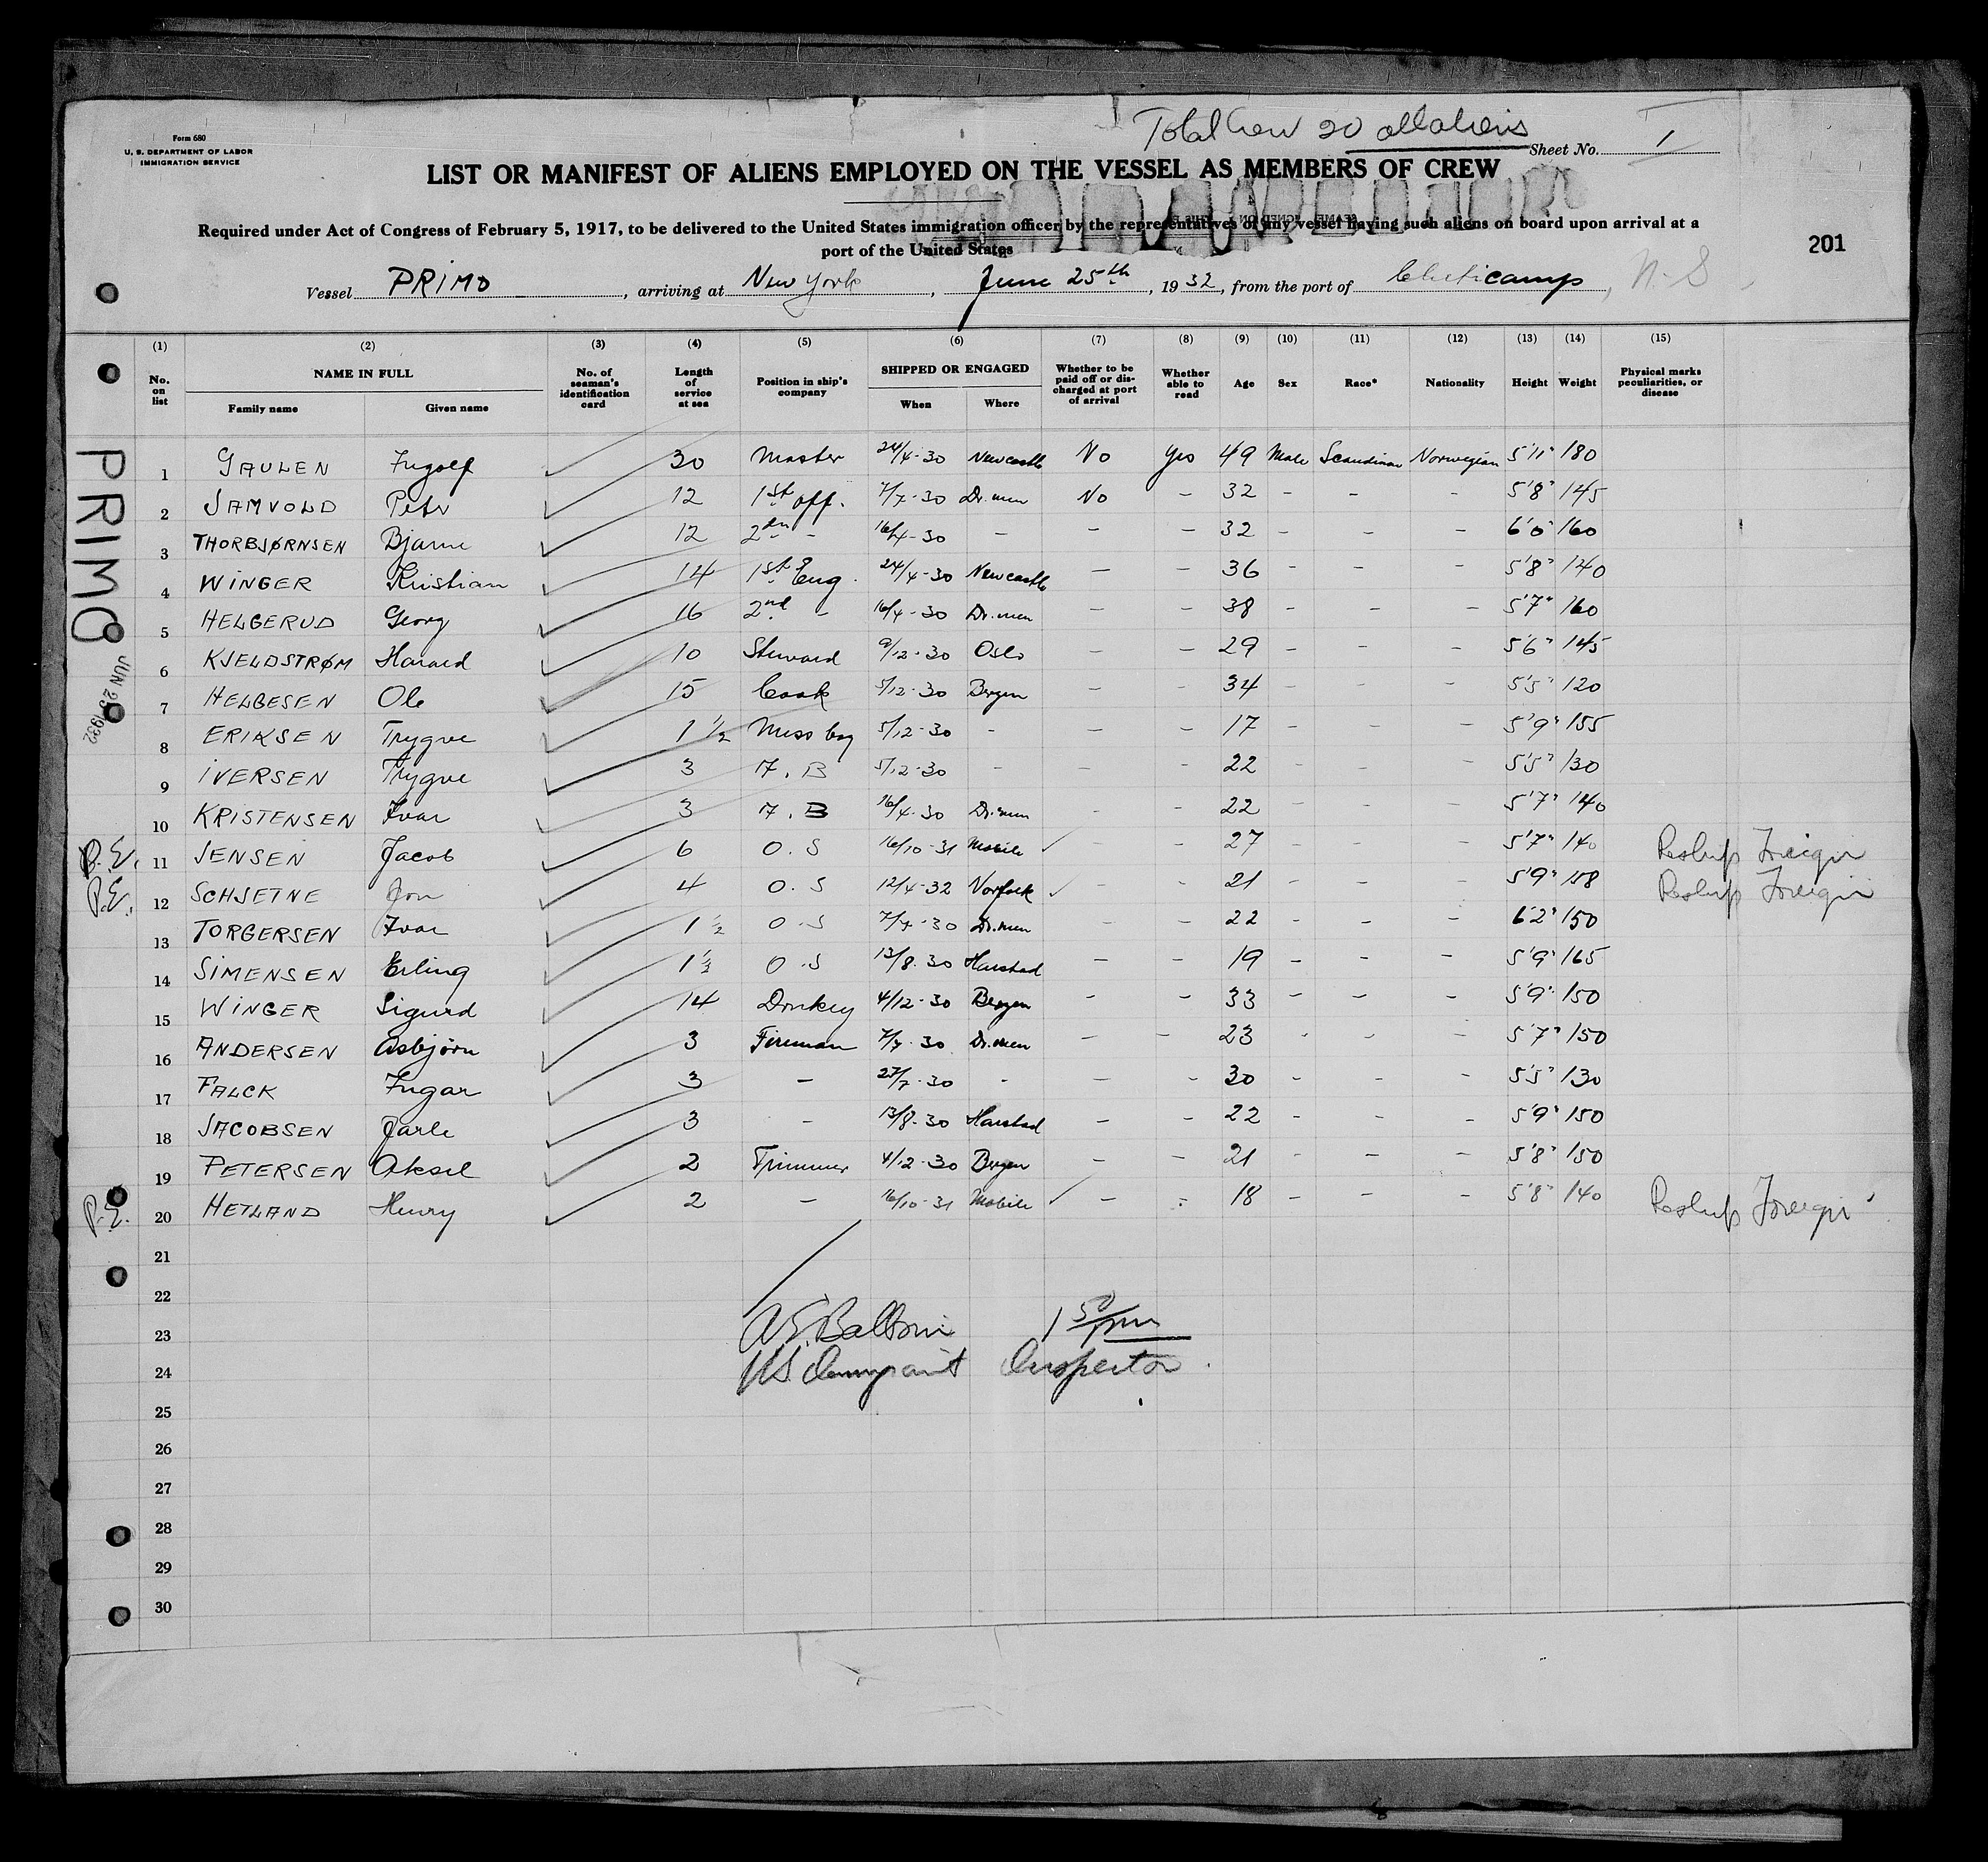 Total Crew 20 all aliens
Form 680
U. S. DEPARTMENT OF LABOR
IMMIGRATION SERVICE
Sheet No. 1
LIST OR MANIFEST OF ALIENS EMPLOYED ON THE VESSEL AS MEMBERS OF CREW
Required under Act of Congress of February 5, 1917, to be delivered to the United States immigration officer by the representatives of any vessel having such aliens on board upon arrival at a
port of the United States
201
Vessel PRIMO, arriving at New York, June 25th, 1932, from the port of Cheticamp, N.S
(1) (2) (3) (4) (5) (6) (7) (8) (9) (10) (11) (12) (13) (14) (15)
No. on list NAME IN FULL Family name Given name No. of seaman's identification card Length of service at sea Position in ship's company SHIPPED OR ENGAGED When Where Whether to be paid off or discharged at port of arrival Whether able to read Age Sex Race* Nationality Height Weight Physical marks peculiarities, or disease
PRIMO
JUN 25 1932
1 GAULEN Ingolf 30 Master 24/4-30 Newcastle No Yes 49 Male Scandinav Norwegian 5'11" 180
2 SAMVOLD Peter 12 1st off. 7/7-30 Dr.men No - 32 - - - 5'8" 145
3 THORBJØRNSEN Bjarne 12 2dn - 16/4-30 - - - 32 - - - 6'0" 160
4 WINGER Kristian 14 1st Eng. 24/4-30 Newcastle - - 36 - - - 5'8" 140
5 HELGERUD Georg 16 2nd - 16/4-30 Dr.men - - 38 - - - 5'7" 160
6 KJELDSTRØM Harald 10 Steward 9/12-30 Oslo - - 29 - - - 5'6" 145
7 HELGESEN Ole 15 Cook 5/12-30 Bergen - - 34 - - - 5'5" 120
8 ERIKSEN Trygve 1 1/2 Mess boy 5/12-30 - - - 17 - - - 5'9" 155
9 IVERSEN Trygve 3 7. B 5/12-30 - - - 22 - - - 5'5" 130
10 KRISTENSEN Ivar 3 7. B 16/4-30 Dr.men - - 22 - - - 5'7" 140
P.E. 11 JENSEN Jacob 6 O. S 16/10-31 Mobile - - 27 - - - 5'7" 140 Reship Foreign
P.E. 12 SCHJETNE Jon 4 O. S 12/4-32 Norfolk - - 21 - - - 5'9" 158 Reship Foreign
13 TORGERSEN Ivar 1 1/2 O. S 7/7-30 Dr.men - - 22 - - - 6'2" 150
14 SIMENSEN Erling 1 1/2 O. S 13/8-30 Harstad - - 19 - - - 5'9" 165
15 WINGER Sigurd 14 Donkey 4/12-30 Bergen - - 33 - - - 5'9" 150
16 ANDERSEN Asbjørn 3 Fireman 7/7-30 Dr.men - - 23 - - - 5'7" 150
17 FALCK Ingar 3 - 27/7-30 - - - 30 - - - 5'5" 130
18 JACOBSEN Jarle 3 - 13/8-30 Harstad - - 22 - - - 5'9" 150
19 PETERSEN Aksel 2 Trimmer 4/12-30 Bergen - - 21 - - - 5'8" 150
P.E. 20 HETLAND Henry 2 - 16/10-31 Mobile - - 18 - - - 5'8" 140 Reship Foreign
21
22
23 1 50/pm
24 U.S. Immigrant Inspector
25
26
27
28
29
30